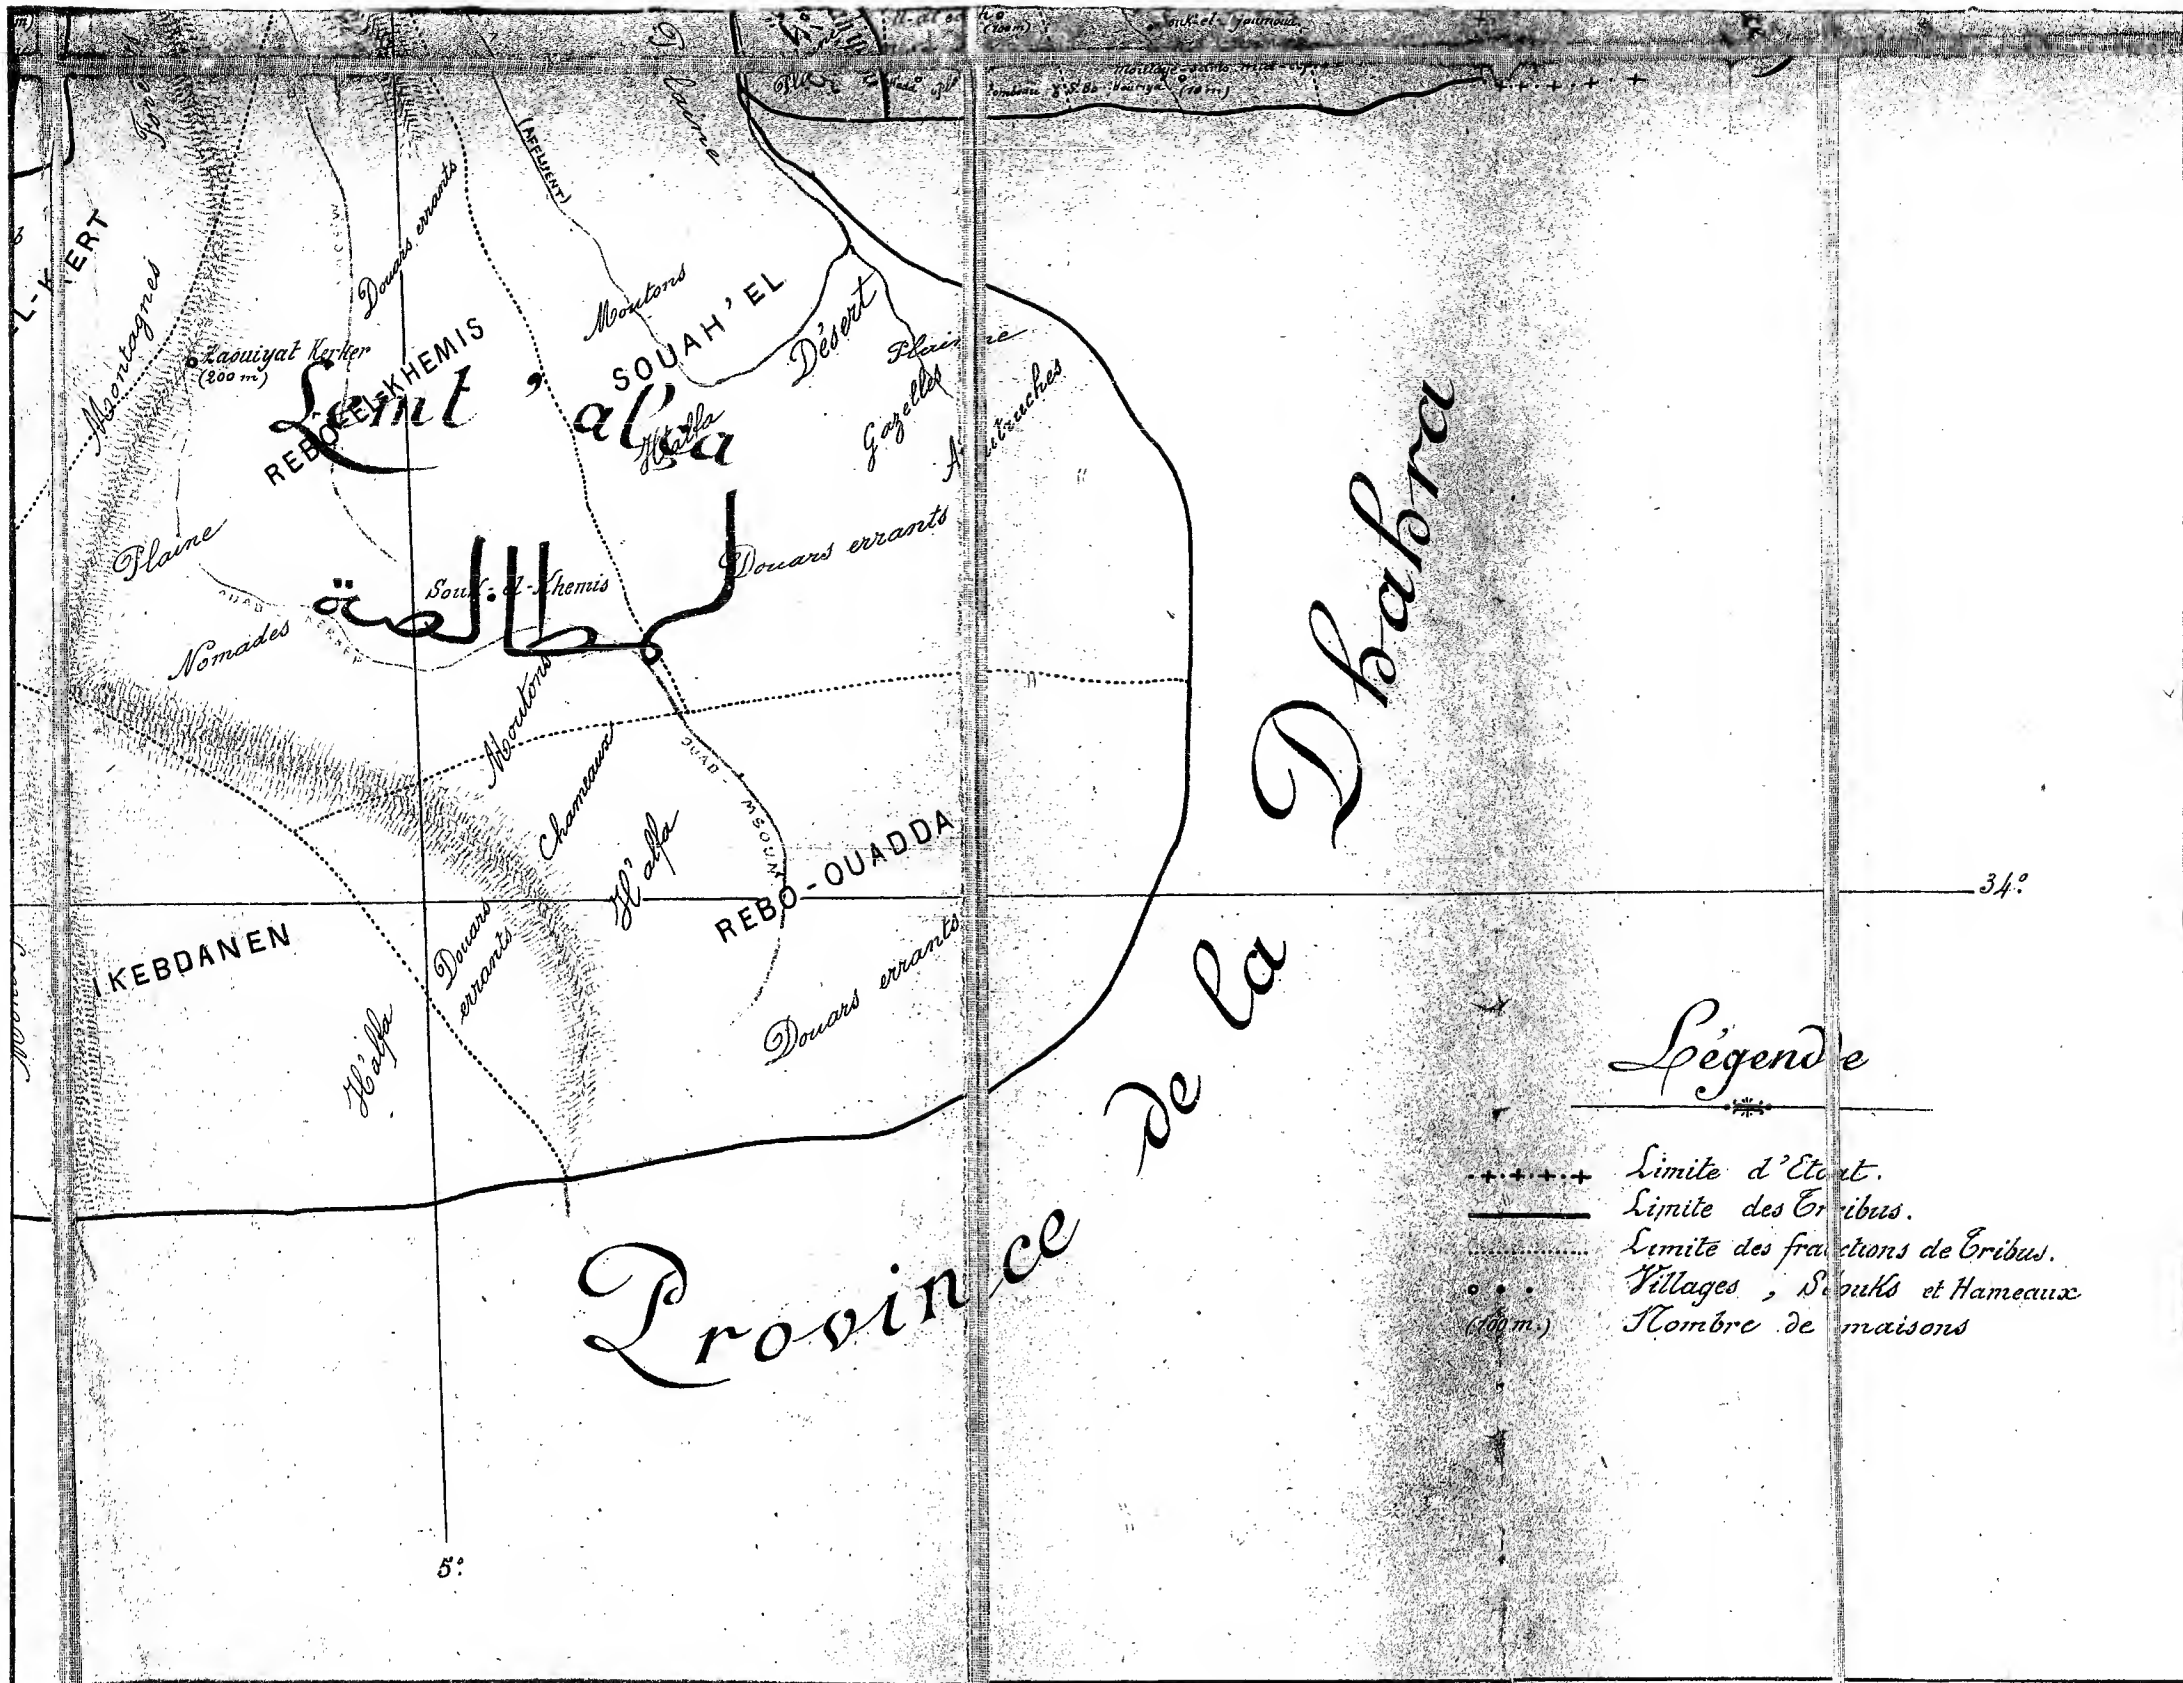 Souk-el-Djoumoua
(100 m)
(10 m)
Plaine
(AFFLUENT)
Douars errants
Montagnes
Moutons
SOUAH'EL
Désert
Plaine
Gazelles
Autruches
Zaouiyat Kerker
(200 m)
REBO-EL-KHEMIS
Lemt'alsa
H'alfa
Plaine
Douars errants
لمطالصة
Souk-el-Khemis
OUAD KERKER
Nomades
Moutons
Chameaux
H'alfa
OUAD MSOUN
REBO-OUADDA
34°
Douars errants
IKEBDANEN
Douars errants
H'alfa
Province de la Dhahra
5°
Légende
Limite d'Etat.
Limite des Tribus.
Limite des fractions de Tribus.
Villages, Souks et Hameaux
(100 m.) Nombre de maisons